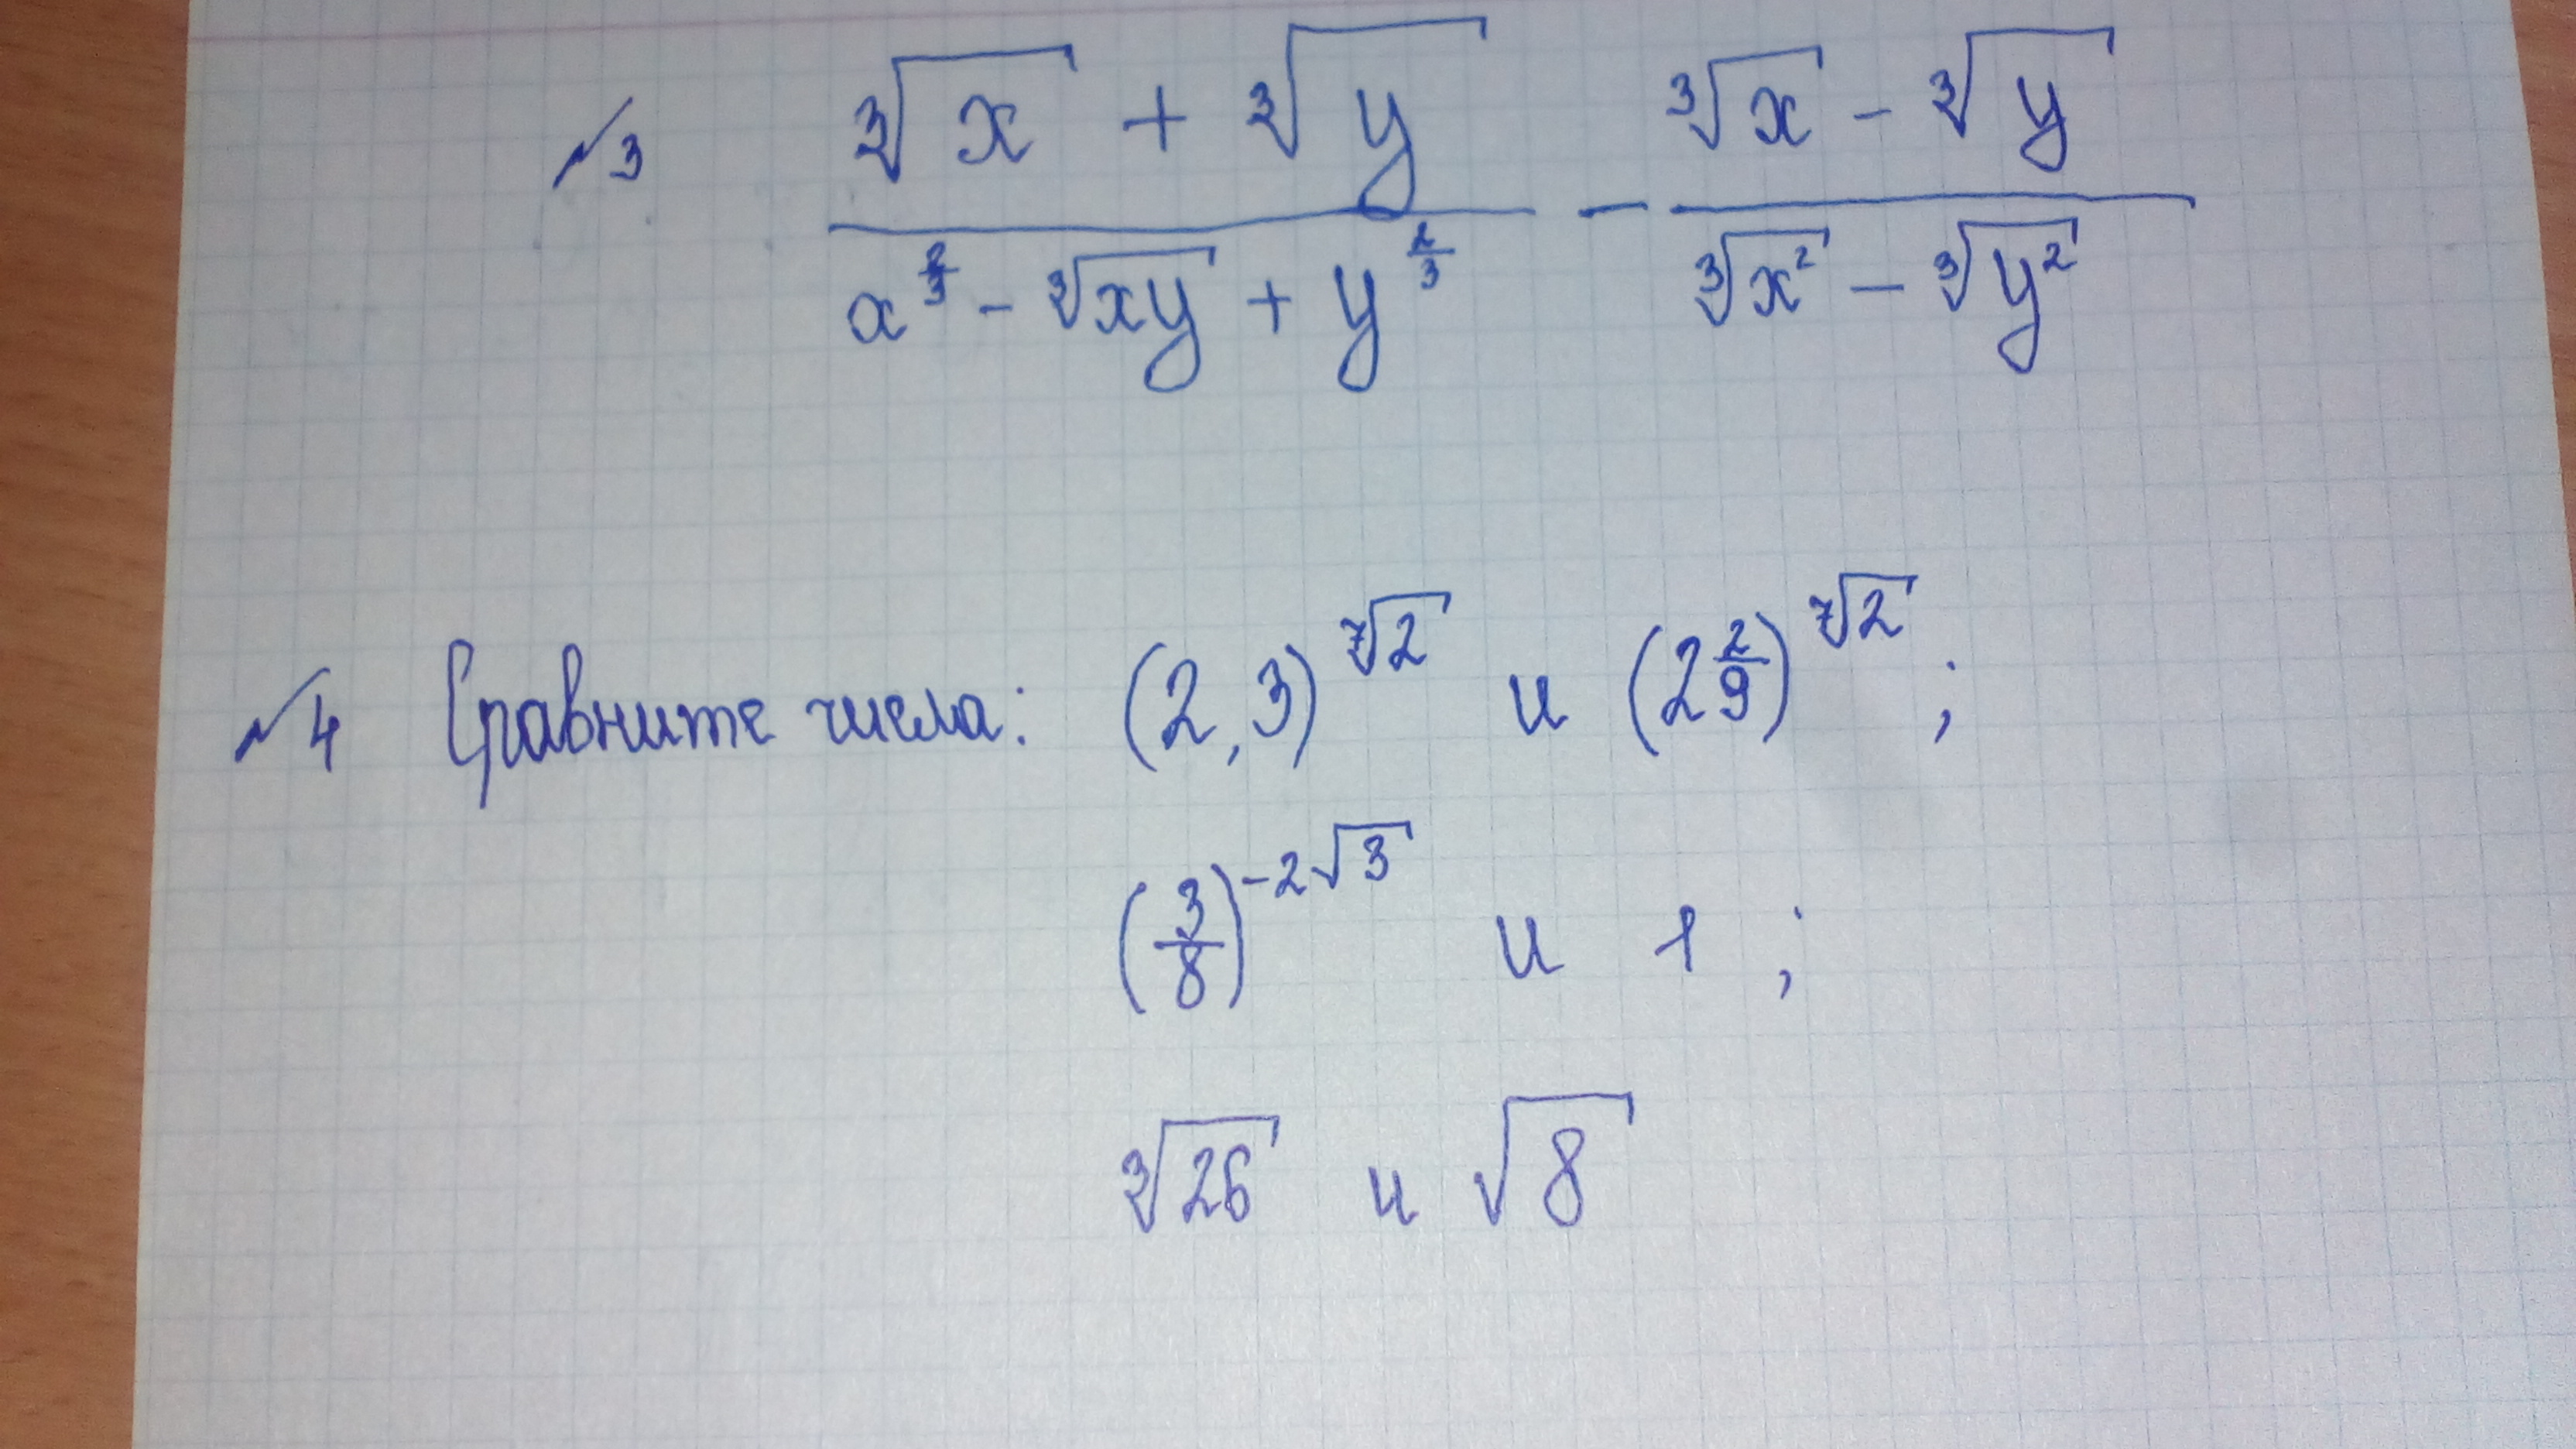 №3 (∛x + ∛y)/(x^(2/3) - ∛xy + y^(2/3)) - (∛x - ∛y)/(∛x² - ∛y²)
№4 Сравните числа: (2,3)^(⁷√2) и (2 2/9)^(⁷√2);
(3/8)^(-2√3) и 1;
∛26 и √8